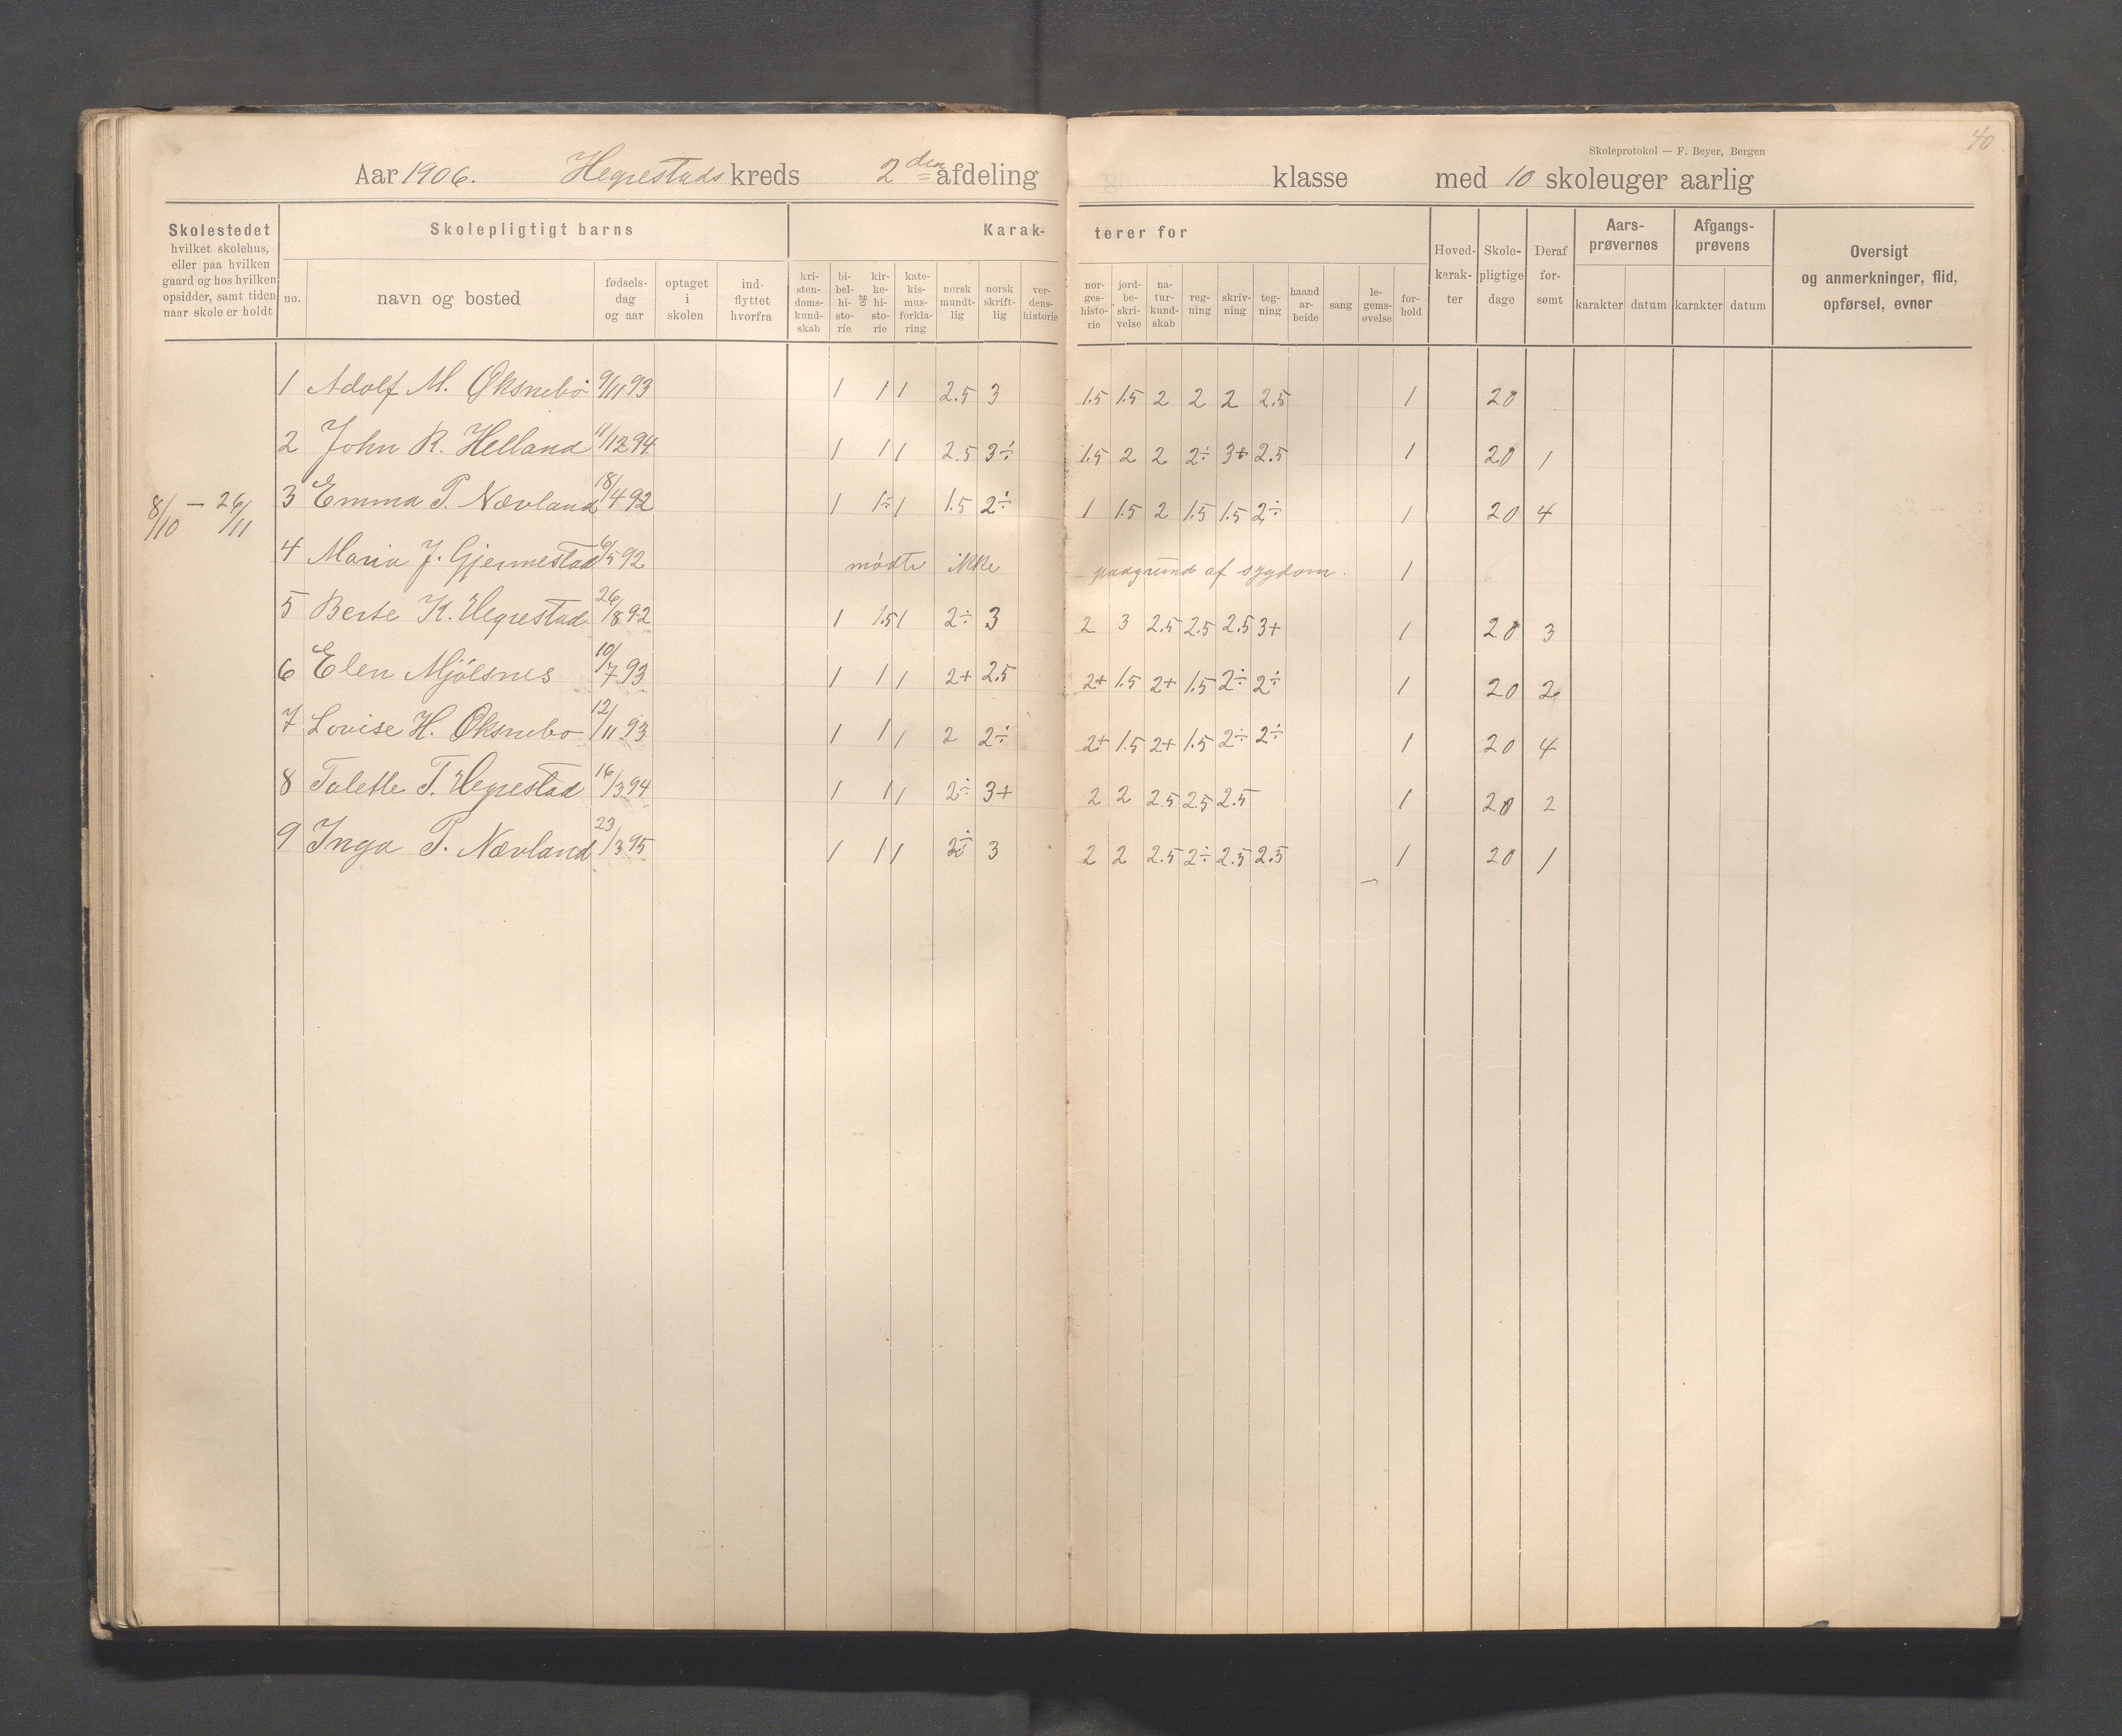 40
Skoleprotokol — F. Beyer, Bergen
Aar 1906. Hegrestads kreds 2den afdeling klasse med 10 skoleuger aarlig
Skolestedet hvilket skolehus, eller paa hvilken gaard og hos hvilken opsidder, samt tiden naar skole er holdt
Skolepligtigt barns
no. navn og bosted fødsels- dag og aar optaget i skolen ind- flyttet hvorfra
Karak- terer for
kri- sten- doms- kund- skab bi- bel- hi- sto- rie og kir- ke- hi- sto- rie kate- kis- mus- forkla- ring norsk mundt- lig norsk skrift- lig ver- dens- historie
nor- ges- histo- rie jord- be- skri- velse na- tur- kund- skab reg- ning skriv- ning teg- ning haand ar- beide sang le- gems- øvelse for- hold
Hoved- karak- ter Skole- pligtige dage Deraf for- sømt
Aars- prøvernes karakter datum
Afgangs- prøvens karakter datum
Oversigt og anmerkninger, flid, opførsel, evner
1 Adolf M. Øksnebø 9/11 93 1 1 1 2.5 3 1.5 1.5 2 2 2 2.5 1 20
2 John R. Helland 11/12 94 1 1 1 2.5 3÷ 1.5 2 2 2÷ 3+ 2.5 1 20 1
8/10 — 26/11
3 Emma P. Nævland 18/4 92 1 1÷ 1 1.5 2÷ 1 1.5 2 1.5 1.5 2÷ 1 20 4
4 Maria J. Gjermestad 6/5 92 mødte ikke – paagrund af sygdom. 1
5 Berte K. Hegrestad 26/8 92 1 1.5 1 2÷ 3 2 3 2.5 2.5 2.5 3+ 1 20 3
6 Elen Mjølsnes 10/7 93 1 1 1 2+ 2.5 2+ 1.5 2+ 1.5 2÷ 2÷ 1 20 2
7 Lovise H. Øksnebø 12/11 93 1 1 1 2 2÷ 2+ 1.5 2+ 1.5 2÷ 2÷ 1 20 4
8 Talette T. Hegrestad 16/3 94 1 1 1 2÷ 3+ 2 2 2.5 2.5 2.5 1 20 2
9 Inga P. Nævland 23/3 95 1 1 1 2÷ 3 2 2 2.5 2÷ 2.5 2.5 1 20 1